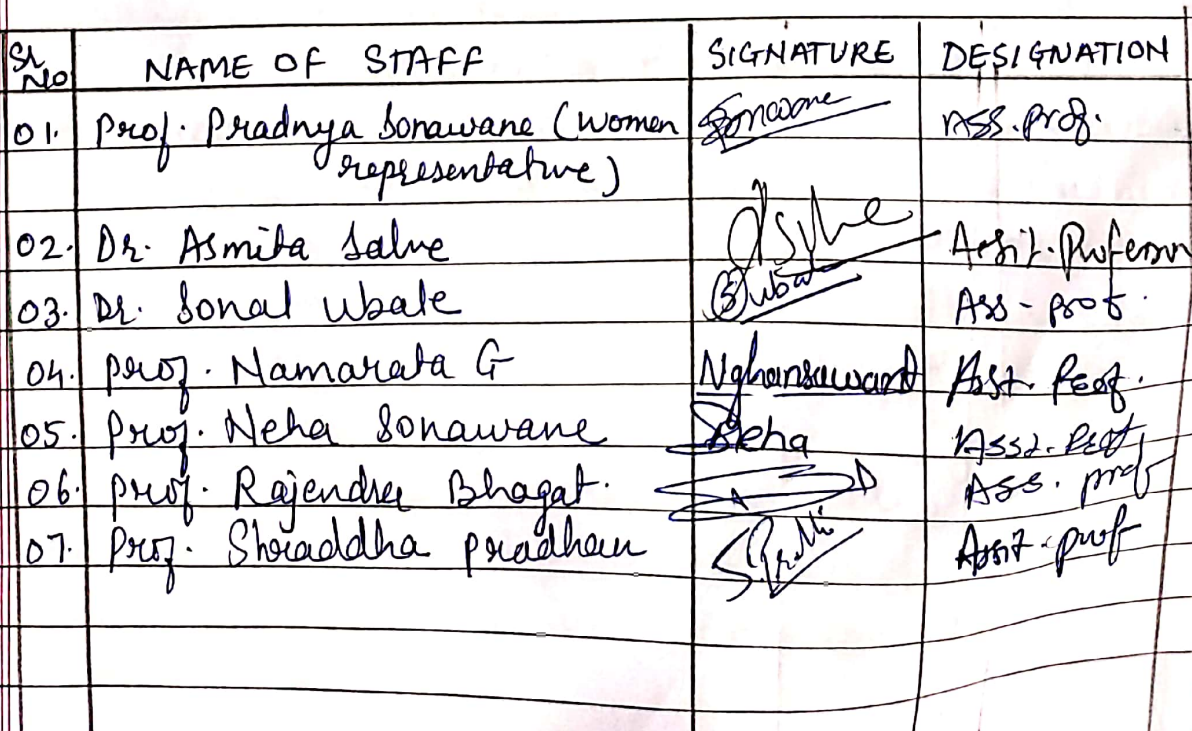 Sr. No NAME OF STAFF SIGNATURE DESIGNATION
01. Prof. Pradnya Sonawane (women Sonawane Ass. Prof.
representative)
02. Dr. Asmita Salve Assit. Professor
03. Dr. Sonal Ubale Ass - prof.
04. Prof. Namarata G Nghansawant Asst. Prof.
05. Prof. Neha Sonawane Neha Asst. Prof
06. Prof. Rajendra Bhagat. Ass. prof
07. Prof. Shraddha pradhan Assit. prof